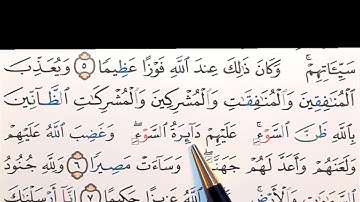 سَيِّـَٔاتِهِمْ ۚ وَكَانَ ذَٰلِكَ عِندَ ٱللَّهِ فَوْزًا عَظِيمًا ٥ وَيُعَذِّبَ
ٱلْمُنَٰفِقِينَ وَٱلْمُنَٰفِقَٰتِ وَٱلْمُشْرِكِينَ وَٱلْمُشْرِكَٰتِ ٱلظَّآنِّينَ
بِٱللَّهِ ظَنَّ ٱلسَّوْءِ ۚ عَلَيْهِمْ دَآئِرَةُ ٱلسَّوْءِ ۖ وَغَضِبَ ٱللَّهُ عَلَيْهِمْ
وَلَعَنَهُمْ وَأَعَدَّ لَهُمْ جَهَنَّمَ ۖ وَسَآءَتْ مَصِيرًا ٦ وَلِلَّهِ جُنُودُ
ٱلسَّمَٰوَٰتِ وَٱلْأَرْضِ ۚ ٱللَّهُ عَزِيزًا حَكِيمًا ٧ إِنَّآ أَرْسَلْنَٰكَ